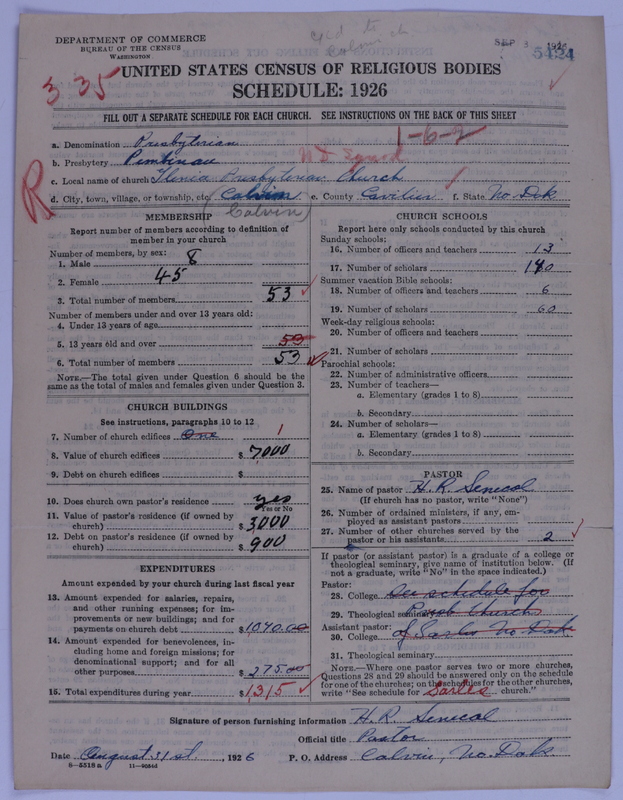 DEPARTMENT OF COMMERCE
BUREAU OF THE CENSUS
WASHINGTON
Calvin
SEP 3 1926
5424
335
UNITED STATES CENSUS OF RELIGIOUS BODIES
SCHEDULE: 1926
FILL OUT A SEPARATE SCHEDULE FOR EACH CHURCH. SEE INSTRUCTIONS ON THE BACK OF THIS SHEET
1-6-2
a. Denomination Presbyterian
b. Presbytery Pembinau
c. Local name of church Ilinia Presbyterian Church
R
d. City, town, village, or township, etc. Calvin e. County Cavilier f. State No. Dak
(Calvin)
MEMBERSHIP
Report number of members according to definition of member in your church
Number of members, by sex:
1. Male 8
2. Female 45
3. Total number of members 53
Number of members under and over 13 years old:
4. Under 13 years of age
5. 13 years old and over 53
6. Total number of members 53
NOTE.—The total given under Question 6 should be
same as the total of males and females given under Question 3.
CHURCH BUILDINGS
See instructions, paragraphs 10 to 12
7. Number of church edifices One 1
8. Value of church edifices $ 7,000
9. Debt on church edifices $
10. Does church own pastor's residence yes
Yes or No
11. Value of pastor's residence (if owned by
church) $ 3,000
12. Debt on pastor's residence (if owned by
church) $ 900
EXPENDITURES
Amount expended by your church during last fiscal year
13. Amount expended for salaries, repairs,
and other running expenses; for im-
provements or new buildings; and for
payments on church debt $ 1040.00
14. Amount expended for benevolences, in-
cluding home and foreign missions; for
denominational support; and for all
other purposes $ 275.00
15. Total expenditures during year $ 1,315
CHURCH SCHOOLS
Report here only schools conducted by this church
Sunday schools:
16. Number of officers and teachers 13
17. Number of scholars
Summer vacation Bible schools:
18. Number of officers and teachers 6
19. Number of scholars 60
Week-day religious schools:
20. Number of officers and teachers
21. Number of scholars
Parochial schools:
22. Number of administrative officers
23. Number of teachers—
a. Elementary (grades 1 to 8)
b. Secondary
24. Number of scholars—
a. Elementary (grades 1 to 8)
b. Secondary
PASTOR
25. Name of pastor H. R. Senecal
(If church has no pastor, write "None")
26. Number of ordained ministers, if any, em-
ployed as assistant pastors
27. Number of other churches served by the
pastor or his assistants 2
If pastor (or assistant pastor) is a graduate of a college or
theological seminary, give name of institution below. (If
not a graduate, write "No" in the space indicated.)
Pastor:
28. College See schedule for
29. Theological seminary Presb Church
Assistant pastor:
30. College of Sarles No. Dak
31. Theological seminary
NOTE.—Where one pastor serves two or more churches,
Questions 28 and 29 should be answered only on the schedule
for one of the churches; on the schedules for the other churches,
write "See schedule for Sarles church."
Signature of person furnishing information H. R. Senecal
Official title Pastor
Date August 31 st., 1926 P. O. Address Calvin, No. Dak.
8—5518a